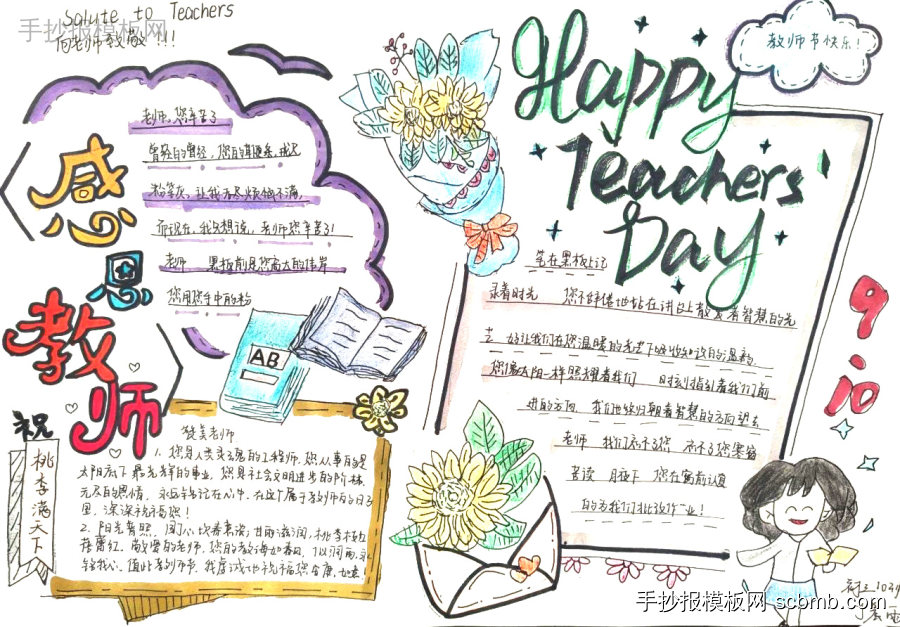 Salute to Teachers
手抄报模板网
向老师致敬!!!
Happy
Teachers'
Day
教师节快乐!
感
恩
教
师
老师,您辛苦了
曾经的曾经,您的
粉笔灰,让我
而现在,我只想说,老师您辛苦了!
老师 黑板前是您高大的
您用您手中的粉
笔在黑板上记
录着时光 您不辞倦地站在讲台上散发着智慧的光
芒 好让我们在您温暖的光芒下
您像太阳一样照耀着我们 时刻指引着我们前
进的方向 我们朝着智慧的方向望去
老师 我们忘不了您 忘不了您
夜读 月夜下 您在窗前认真
的为我们批改作业!
9
10
AB
祝
桃李满天下
赞美老师
1、您是人类灵魂的工程师,您从事的是
太阳底下最光辉的事业,您是社会文明进步的阶梯,
无尽的恩情,永远铭记在心中,在这个属于教师的日子
里,深深祝福您!
2、阳光普照,园丁心坎春意浓;甘雨滋润,桃李枝头
蓓蕾红。敬爱的老师,您的教诲如春风,似润雨,永
铭我心。值此教师节,我虔诚地祝福您安康,如意!
手抄报模板网 scbmb.com